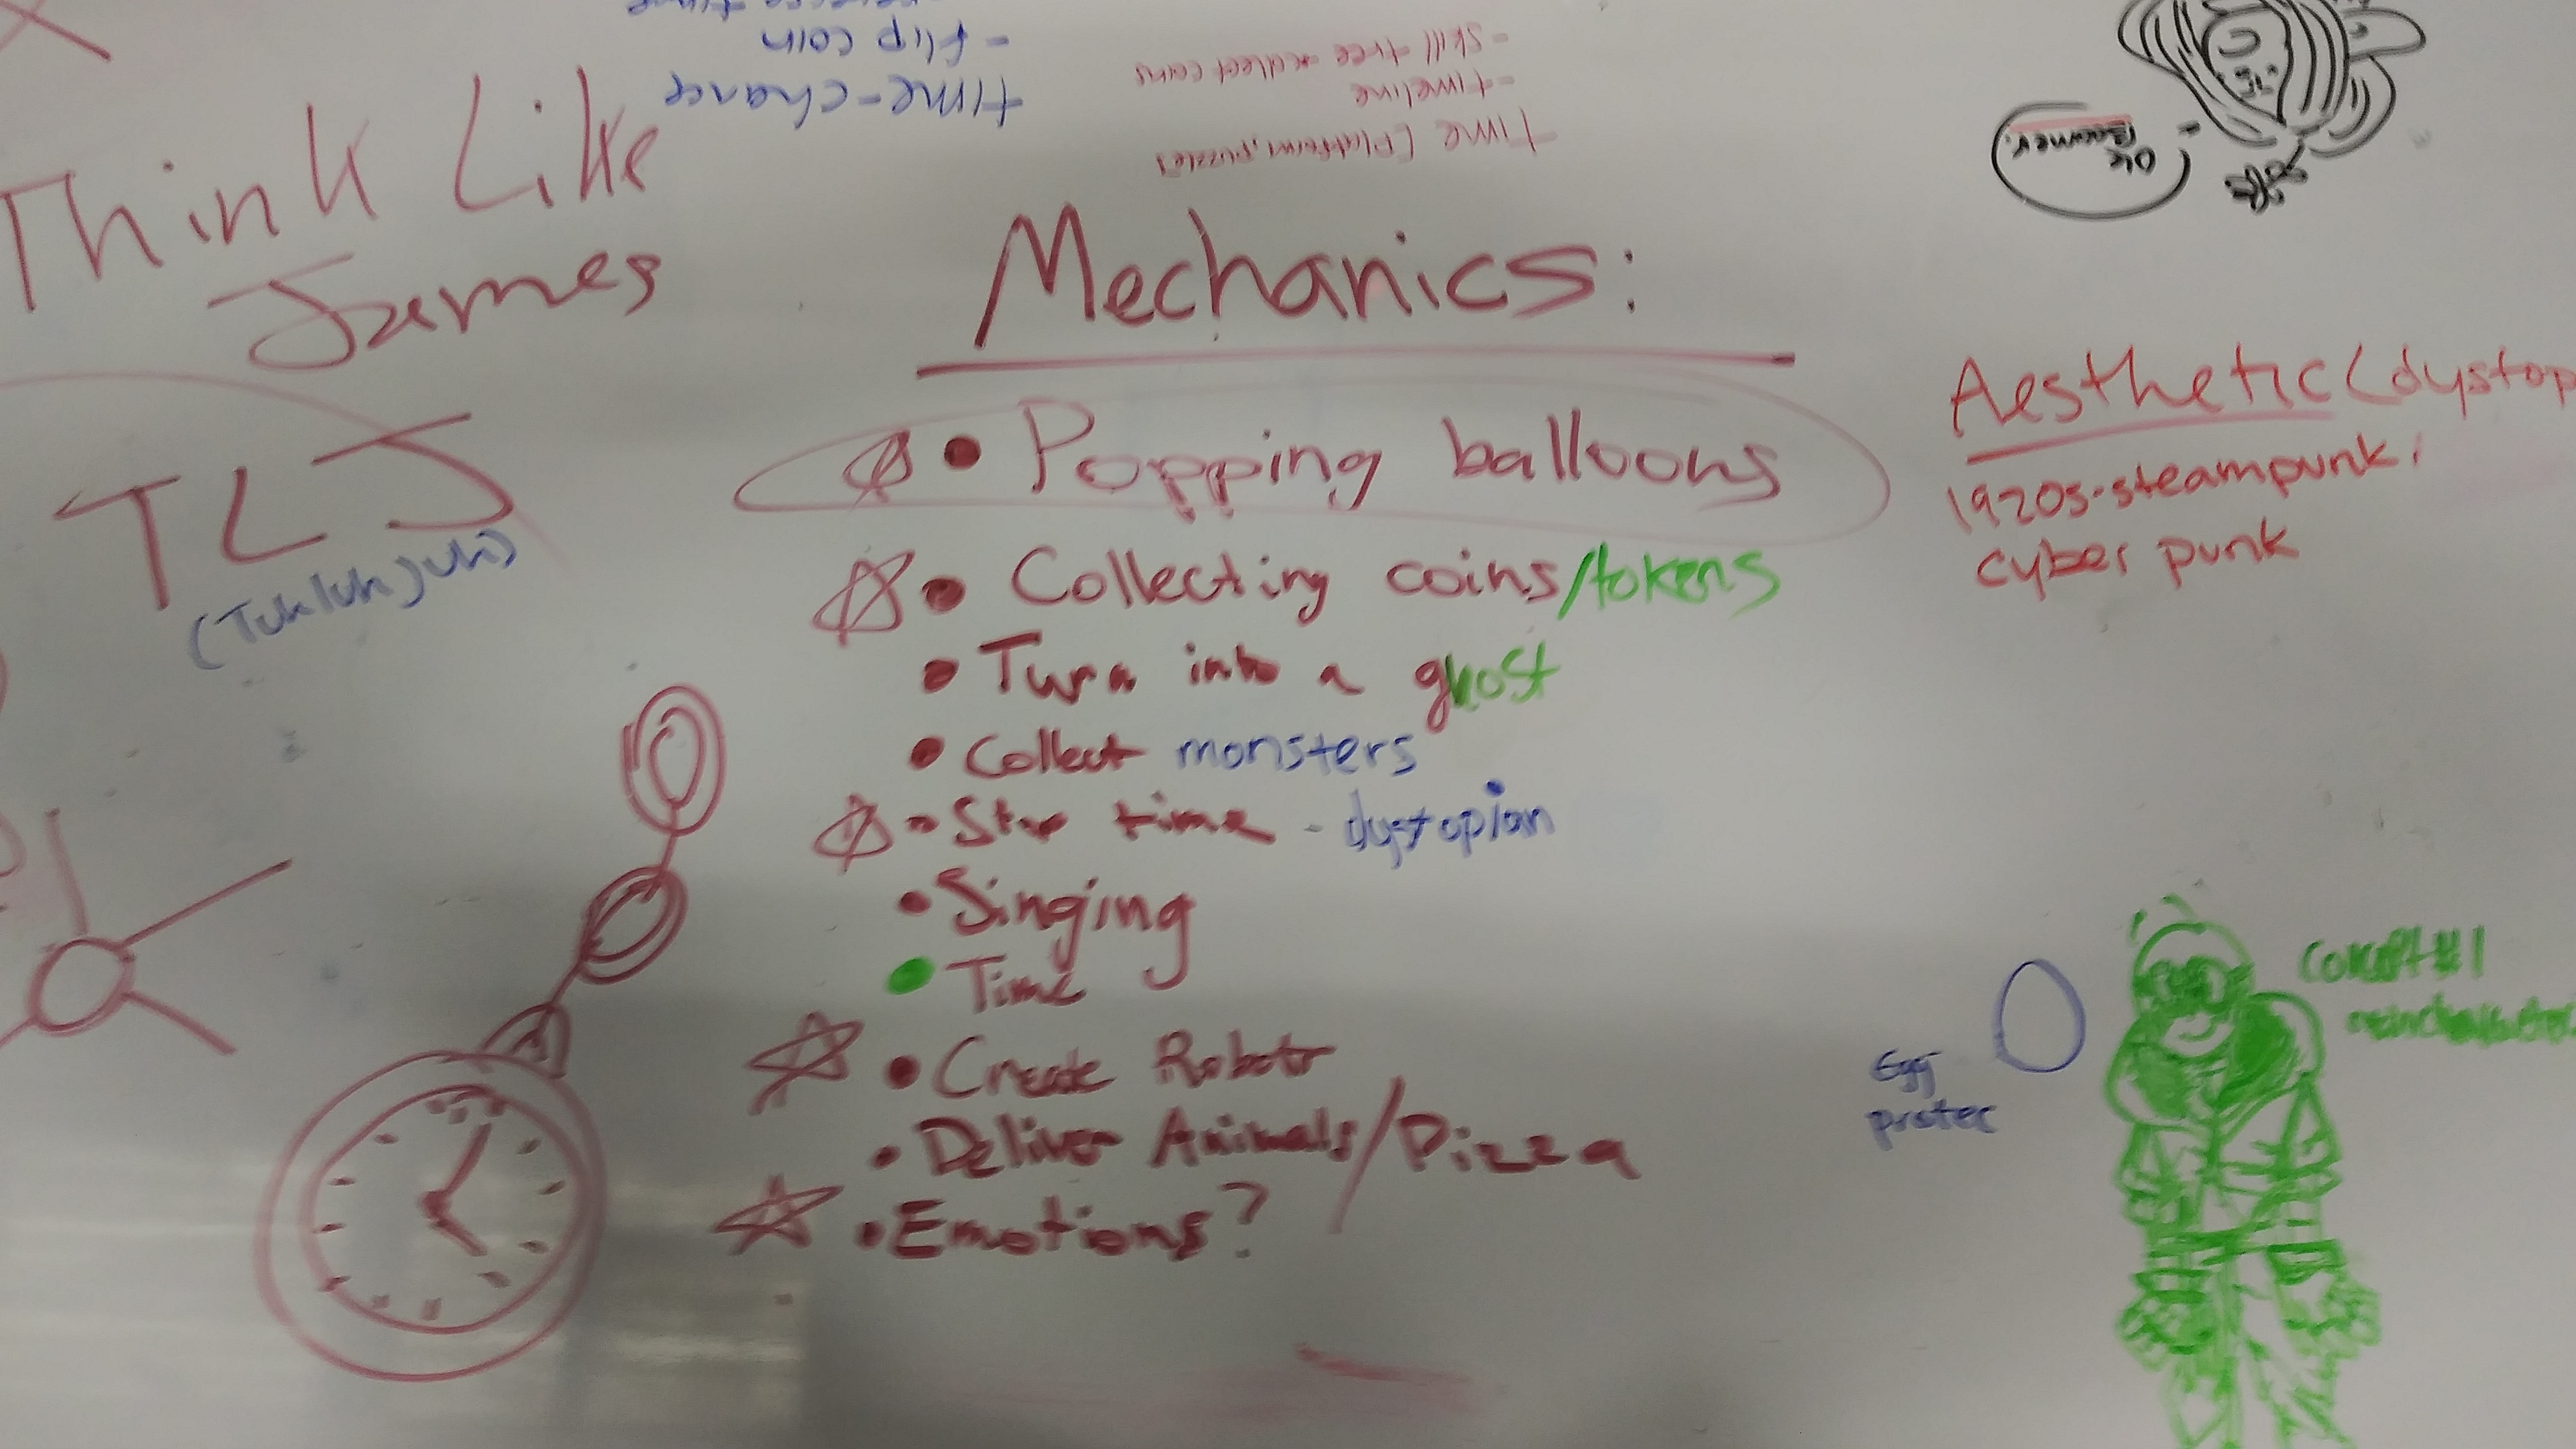 - flip coin
time-chance
- skill tree collect coins
- timeline
time (Platform, puzzles
Ok
Boomer.
Think Like
James
TLJ
(Tuhluhjuh)
Mechanics:
• Popping balloons
• Collecting coins/tokens
• Turn into a ghost
• Collect monsters
• Stop time - dystopian
• Singing
• Time
• Create Robots
• Deliver Animals/Pizza
• Emotions?
Aesthetic (dystop
1920s-steampunk,
cyber punk
Concept #1
Egg
protec